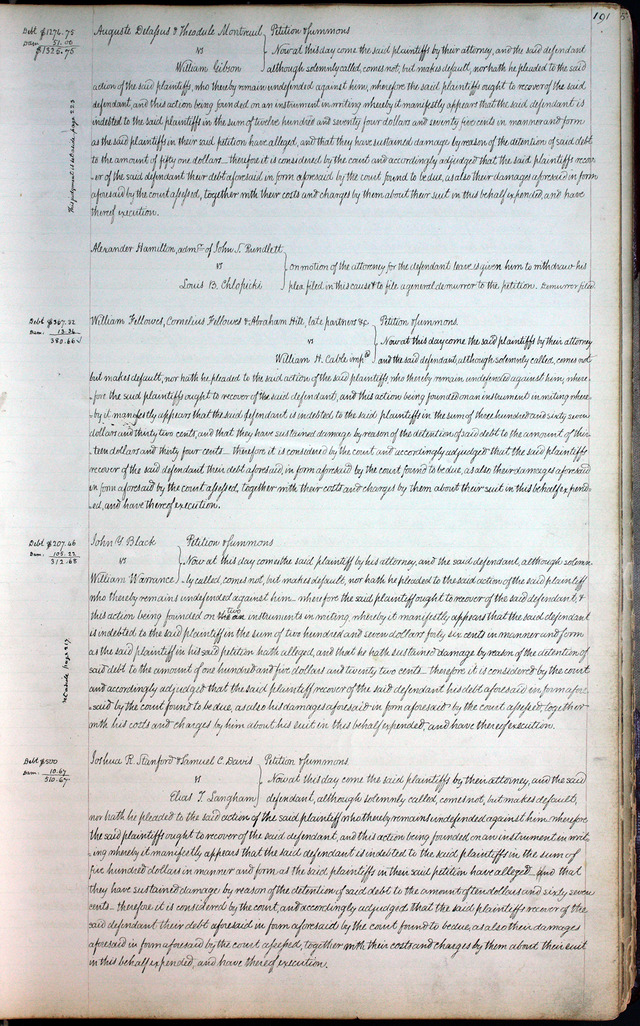 191
Debt $1274.75
Dam 51.00
$1325.75
Auguste Delassus & Theodule Montreuil Petition & summons
vs Now at this day come the said plaintiffs by their attorney, and the said defendant
William Gibson although solemnly called, comes not, but makes default, nor hath he pleaded to the said
action of the said plaintiffs, who thereby remain undefended against him; wherefore the said plaintiffs ought to recover of the said
defendant, and this action being founded on an instrument in writing whereby it manifestly appears that the said defendant is
indebted to the said plaintiffs in the sum of twelve hundred and seventy four dollars and seventy five cents in manner and form
as the said plaintiffs in their said petition have alleged, and that they have sustained damage by reason of the detention of said debt
to the amount of fifty one dollars_ therefore it is considered by the court and accordingly adjudged that the said plaintiffs recov-
er of the said defendant their debt aforesaid in form aforesaid by the court found to be due, as also their damages aforesaid in form
aforesaid by the court assessed, together with their costs and charges by them about their suit in this behalf expended, and have
thereof execution.
This judgment is set aside page 223
Alexander Hamilton, admr. of John S. Rundlett
vs on motion of the attorney for the defendant leave is given him to withdraw his
Louis B. Chlopicki plea filed in this cause & to file a general demurrer to the petition. Demurrer filed
Debt $367.32
Dam. 13.34
380.66
William Fellowes, Cornelius Fellowes & Abraham Hite, late partners &c Petition & summons.
vs Now at this day come the said plaintiffs by their attorney
William H. Cable impd and the said defendant, although solemnly called, comes not
but makes default, nor hath he pleaded to the said action of the said plaintiffs, who thereby remain undefended against him; where-
fore the said plaintiffs ought to recover of the said defendant, and this action being founded on an instrument in writing where-
by it manifestly appears that the said defendant is indebted to the said plaintiffs in the sum of three hundred and sixty seven
dollars and thirty two cents, and that they have sustained damage by reason of the detention of said debt to the amount of thir-
teen dollars and thirty four cents_ therefore it is considered by the court and accordingly adjudged that the said plaintiffs
recover of the said defendant their debt aforesaid, in form aforesaid by the court found to be due, as also their damages aforesaid
in form aforesaid by the court assessed, together with their costs and charges by them about their suit in this behalf expend-
ed, and have thereof execution.
Debt $207.46
Dam. 105.22
312.68
John Y. Black Petition & summons
vs Now at this day comes the said plaintiff by his attorney, and the said defendant, although solemn-
William Warrance ly called, comes not, but makes default, nor hath he pleaded to the said action of the said plaintiff
who thereby remains undefended against him_ wherefore the said plaintiff ought to recover of the said defendant, &
two
this action being founded on instruments in writing, whereby it manifestly appears that the said defendant
is indebted to the said plaintiff in the sum of two hundred and seven dollars forty six cents in manner and form
as the said plaintiff in his said petition hath alleged, and that he hath sustained damage by reason of the detention of
said debt to the amount of one hundred and five dollars and twenty two cents_ therefore it is considered by the court
and accordingly adjudged that the said plaintiff recover of the said defendant his debt aforesaid in form afore-
said by the court found to be due, as also his damages aforesaid in form aforesaid by the court assessed, together
with his costs and charges by him about his suit in this behalf expended, and have thereof execution.
Debt $500
Dam. 10.67
510.67
Joshua R. Stanford & Samuel C. Davis Petition & summons
vs Now at this day come the said plaintiffs by their attorney, and the said
Elias T. Langham defendant, although solemnly called, comes not, but makes default,
nor hath he pleaded to the said action of the said plaintiff who thereby remains undefended against him. wherefore
the said plaintiffs ought to recover of the said defendant, and this action being founded on an instrument in writ-
ing whereby it manifestly appears that the said defendant is indebted to the said plaintiffs in the sum of
five hundred dollars in manner and form as the said plaintiffs in their said petition have alleged_ and that
they have sustained damage by reason of the detention of said debt to the amount of ten dollars and sixty seven
cents_ therefore it is considered by the court, and accordingly adjudged that the said plaintiffs recover of the
said defendant their debt aforesaid in form aforesaid by the court found to be due, as also their damages
aforesaid in form aforesaid by the court assessed, together with their costs and charges by them about their suit
in this behalf expended, and have thereof execution.